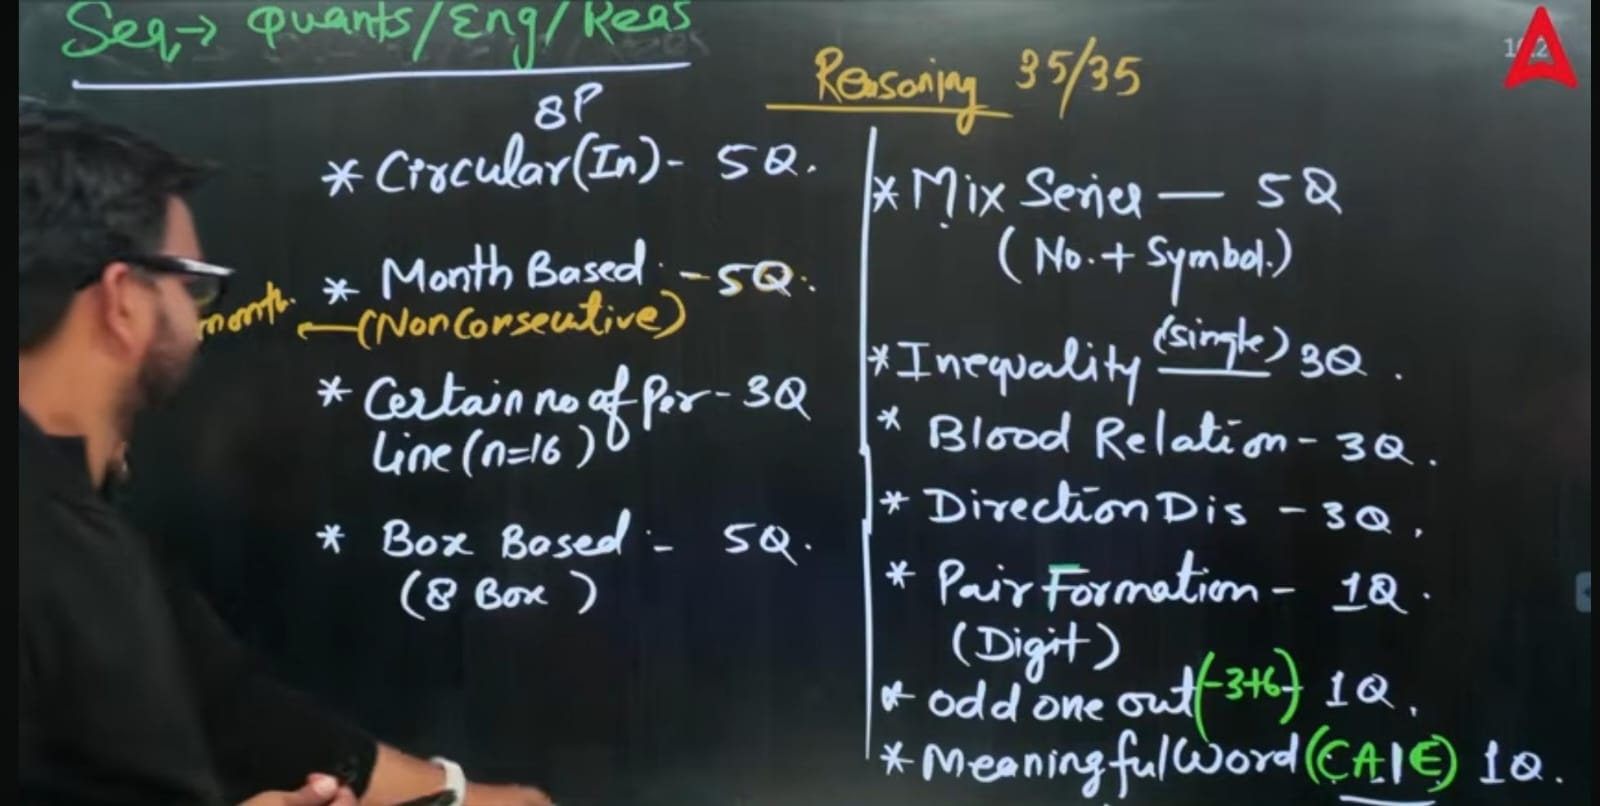 Seq→ Quants/Eng/Reas
Reasoning 35/35
8P
* Circular(In)- 5Q.
* Month Based - 5Q.
month. ←(NonConsecutive)
* Certain no of Per - 3Q
line (n=16)
* Box Based - 5Q.
(8 Box)
* Mix Series — 5Q
(No.+ Symbol.)
* Inequality (single) 3Q.
* Blood Relation - 3Q.
* Direction Dis - 3Q.
* Pair Formation - 1Q.
(Digit)
* odd one out (-3+6) 1Q.
* Meaningful Word (CAIE) 1Q.